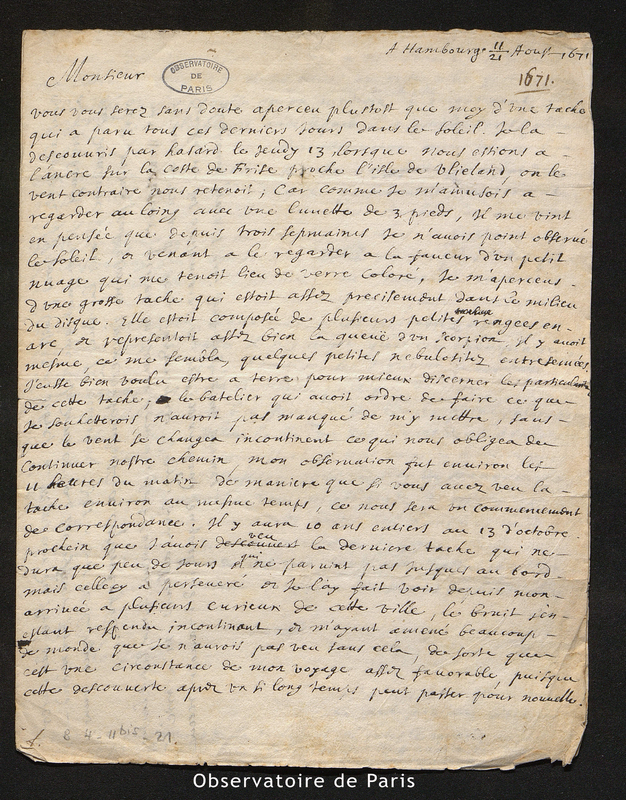 A Hambourg 11/21 Aoust 1671
1671.
Monsieur
OBSERVATOIRE
DE
PARIS
vous vous serez sans doute aperceu plustost que moy d'vne tache
qui a paru tous ces derniers jours dans le soleil. Je la
descouuris par hasard le Jeudy 13, lorsque nous estions a
l'ancre sur la coste de Frise proche l'isle de Vlieland, ou le
vent contraire nous retenoit; Car comme Je m'amusois a
regarder au loing auec vne lunette de 3 pieds, Il me vint
en pensée que depuis trois sepmaines Je n'auois point obserué
le soleil, et venant a le regarder a la faueur d'vn petit
nuage qui me tenoit lieu de verre coloré, Je m'aperceus
d'vne grosse tache qui estoit assez precisement dans le milieu
du disque. Elle estoit composée de plusieurs petites rengees en
arc, et representoit assez bien la queüe d'vn scorpion, il y auoit
mesme, ce me sembla, quelques petites nebulositez entresemées,
J'eusse bien voulu estre a terre pour mieux discerner les particularitez
de cette tache; le batelier qui auoit ordre de faire ce que
Je souhetterois n'auroit pas manqué de m'y mettre, sans
que le vent se changea incontinent ce qui nous obligea de
Continuer nostre chemin, mon obseruation fut enuiron les
11 heures du matin de maniere que si vous auez veu la
tache enuiron au mesme temps, ce nous sera vn commencement
de correspondance. Il y aura 10 ans entiers au 13 d'octobre
prochein que J'auois veu la derniere tache qui ne
dura que peu de jours qui ne paruint pas jusques au bord
mais celle cy a perseueré et Je l'ay fait voir depuis mon
arriuée a plusieurs curieux de cette ville, le bruit s'en
estant respendu incontinant, et m'ayant amené beaucoup
de monde que Je n'aurois pas veu sans cela, de sorte que
c'est vne circonstance de mon voyage assez fauorable, puisque
cette descouuerte aprez vn si long temps peut passer pour nouuelle.
8 4 - 11 bis - 21.
Observatoire de Paris